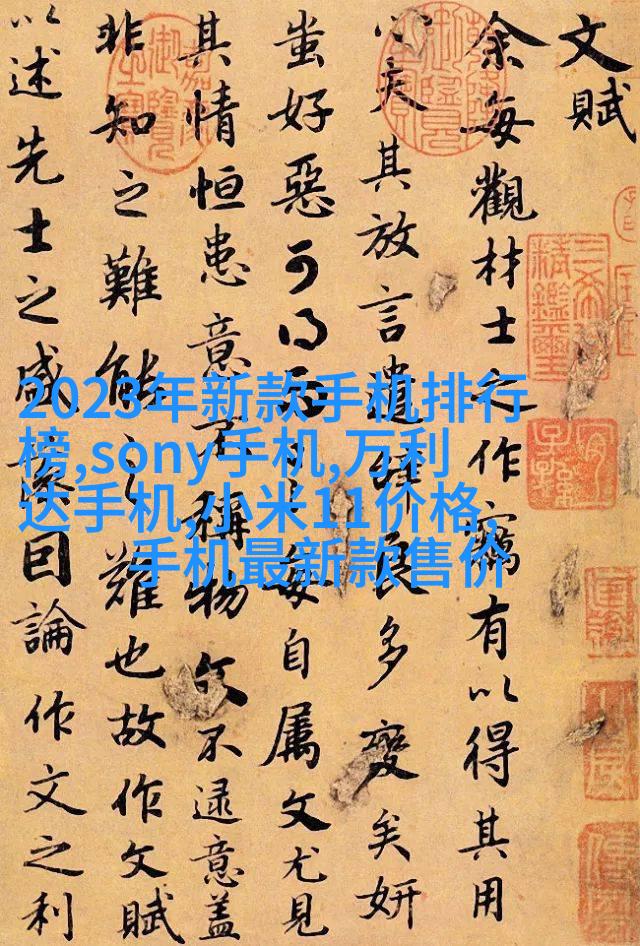 文賦
余每觀材士之作竊有以得其用
心矣其放言遣辭良多變矣妍
蚩好惡可得而言每自屬文尤見
其情恒患意不稱物文不逮意蓋
非知之難能之難也故作文賦
以述先士之盛藻因論作文之利
2023年新款手机排行
榜,sony手机,万利
达手机,小米11价格,
手机最新款售价